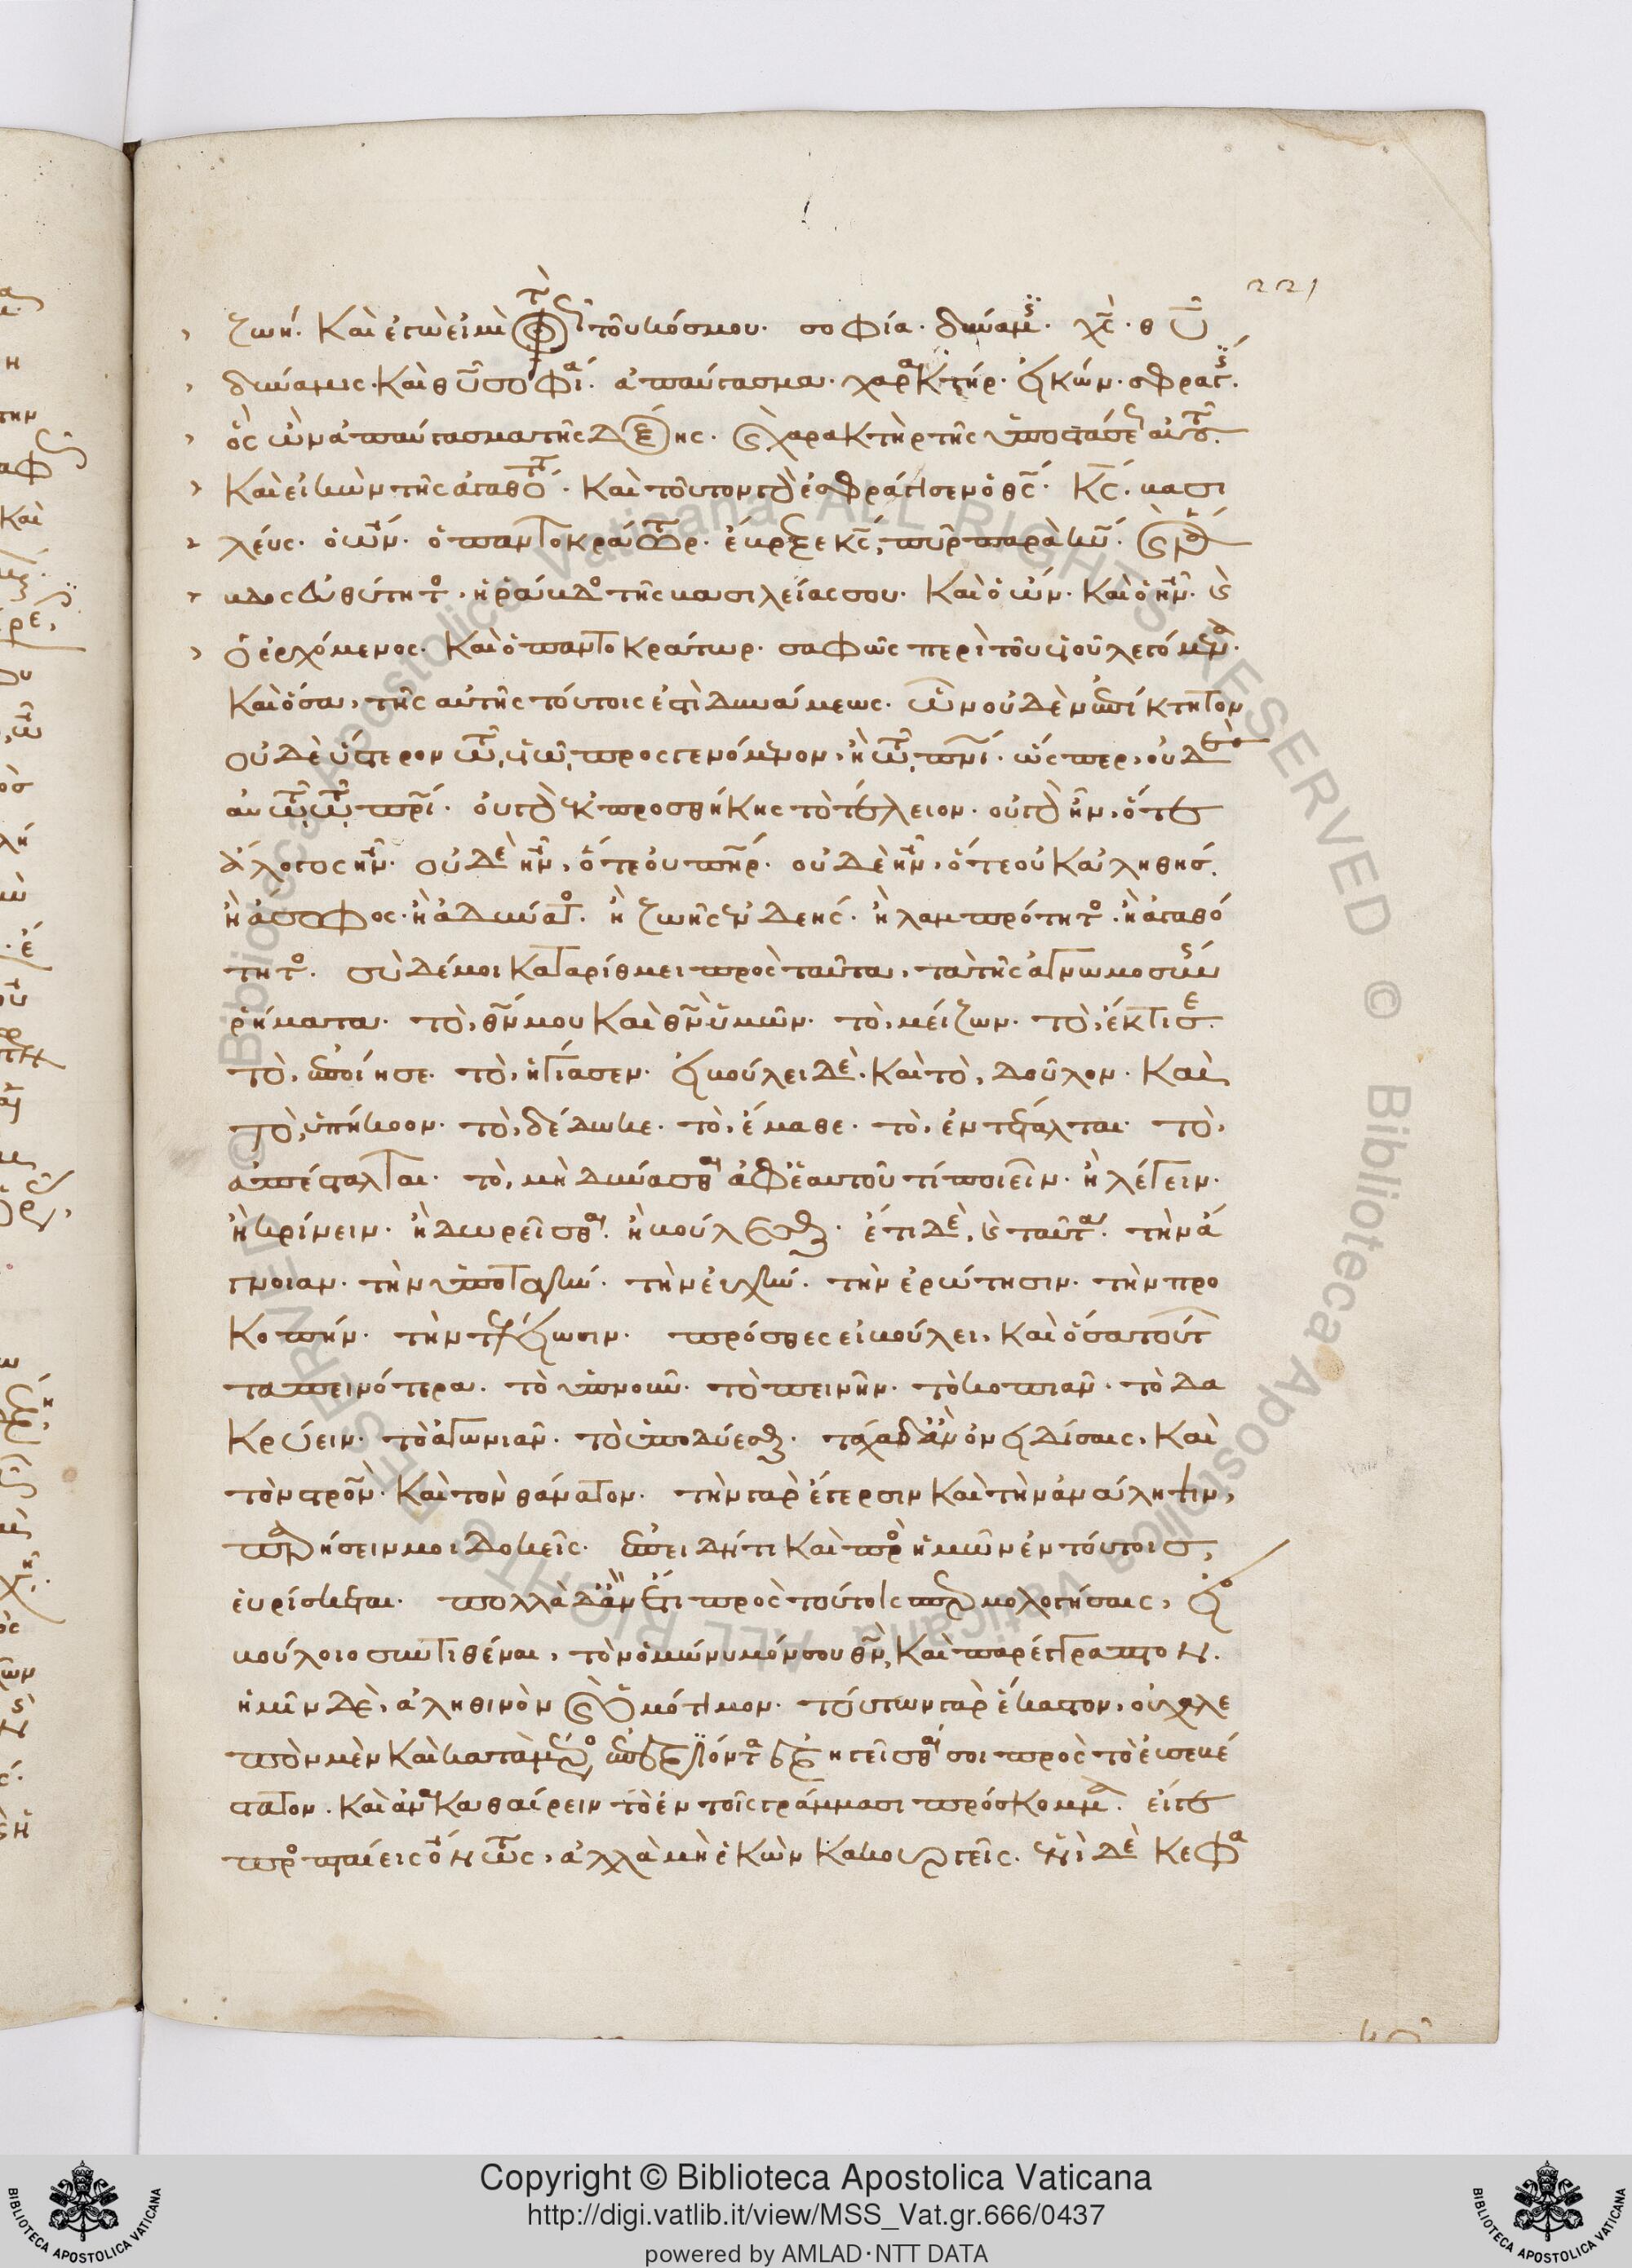 221
ζωή. Καὶ ἐγώ εἰμι τὸ φῶς τοῦ κόσμου. σοφία. δύναμις. χς. θυ
δύναμις. Καὶ θυ σοφία. ἀπαύγασμα. χαρακτήρ. εἰκών. σφραγίς.
ὃς ὢν ἀπαύγασμα τῆς δόξης. καὶ χαρακτὴρ τῆς ὑποστάσεως αὐτοῦ.
Καὶ εἰκὼν τῆς ἀγαθότητος. Καὶ τοῦτον γὰρ ἐσφράγισεν ὁ θς. κς. βασι
λεύς. ὁ ὤν. ὁ παντοκράτωρ. ἔβρεξε κς, πῦρ παρὰ κυ. καὶ ῥά
βδος εὐθύτητος, ἡ ῥάβδος τῆς βασιλείας σου. Καὶ ὁ ὤν. Καὶ ὁ ἦν. καὶ
ὁ ἐρχόμενος. Καὶ ὁ παντοκράτωρ. σαφῶς περὶ τοῦ υἱοῦ λεγόμενα.
Καὶ ὅσα, τῆς αὐτῆς τούτοις ἐστὶ δυνάμεως. ὧν οὐδὲν ἐπίκτητον
οὐδὲ ὕστερον τῷ υἱῷ προσγενόμενον, ἢ τῷ πνι. ὥσπερ, οὐδὲ
αὐτῷ τῷ πρι. οὐ γὰρ ἐκ προσθήκης τὸ τέλειον. οὐ γὰρ ἦν, ὅτε
ἄλογος ἦν. οὐδὲ ἦν, ὅτε οὐ πηρ. οὐδὲ ἦν, ὅτε οὐκ ἀληθής.
ἢ ἄσοφος. ἢ ἀδύνατος. ἢ ζωῆς ἐνδεής. ἢ λαμπρότητος. ἢ ἀγαθό
τητος. σὺ δέ μοι καταρίθμει πρὸς ταῦτα, τὰ τῆς ἀγνωμοσύνης
ῥήματα. τὸ, θν μου καὶ θν ὑμῶν. τὸ, μείζων. τὸ, ἔκτισε.
τὸ, ἐποίησε. τὸ, ἡγίασεν. εἰ βούλει δὲ. Καὶ τὸ, δοῦλον. Καὶ
τὸ, ὑπήκοον. τὸ, δέδωκε. τὸ, ἔμαθε. τὸ, ἐντέταλται. τὸ,
ἀπέσταλται. τὸ, μὴ δύνασθαι ἀφ' ἑαυτοῦ τί ποιεῖν. ἢ λέγειν.
ἢ κρίνειν. ἢ δωρεῖσθαι. ἢ βούλεσθαι. ἔτι δὲ, καὶ ταῦτα. τὴν ἄ
γνοιαν. τὴν ὑποταγήν. τὴν εὐχήν. τὴν ἐρώτησιν. τὴν προ
κοπήν. τὴν τελείωσιν. πρόσθες εἰ βούλει, Καὶ ὅσα τούτων
ταπεινότερα. τὸ ὑπνοῦν. τὸ πεινῆν. τὸ κοπιᾶν. τὸ δα
κρύειν. τὸ ἀγωνιᾶν. τὸ ὑποδύεσθαι. τάχα δ' ἂν ὀνειδίσαις, Καὶ
τὸν στρον. Καὶ τὸν θάνατον. τὴν γὰρ ἔγερσιν Καὶ τὴν ἀνάληψιν,
παρήσειν μοι δοκεῖς. ἐπειδή τι Καὶ πρὸς ἡμῶν ἐν τούτοις,
εὑρίσκεται. πολλὰ δ' ἂν ἔτι πρὸς τούτοις σπερμολογήσαις, εἰ
βούλοιο συντιθέναι, τὸν ὁμώνυμόν σου θν, Καὶ παρέγγραπτον.
ἡμῖν δὲ, ἀληθινὸν καὶ ὁμότιμον. τούτων γὰρ ἕκαστον, οὐ χαλε
πὸν μὲν Καὶ κατὰ μέρος ἐπεξιόντα ἐξηγεῖσθαί σοι πρὸς τὸ εὐσεβέ
στατον. Καὶ ἀνακαθαίρειν τὸ ἐν τοῖς γράμμασι πρόσκομμα. εἴγε
προσπταίεις ὄντως, ἀλλὰ μὴ ἑκὼν κακουργεῖς. ἑνὶ δὲ κεφα
Copyright © Biblioteca Apostolica Vaticana
http://digi.vatlib.it/view/MSS_Vat.gr.666/0437
powered by AMLAD·NTT DATA